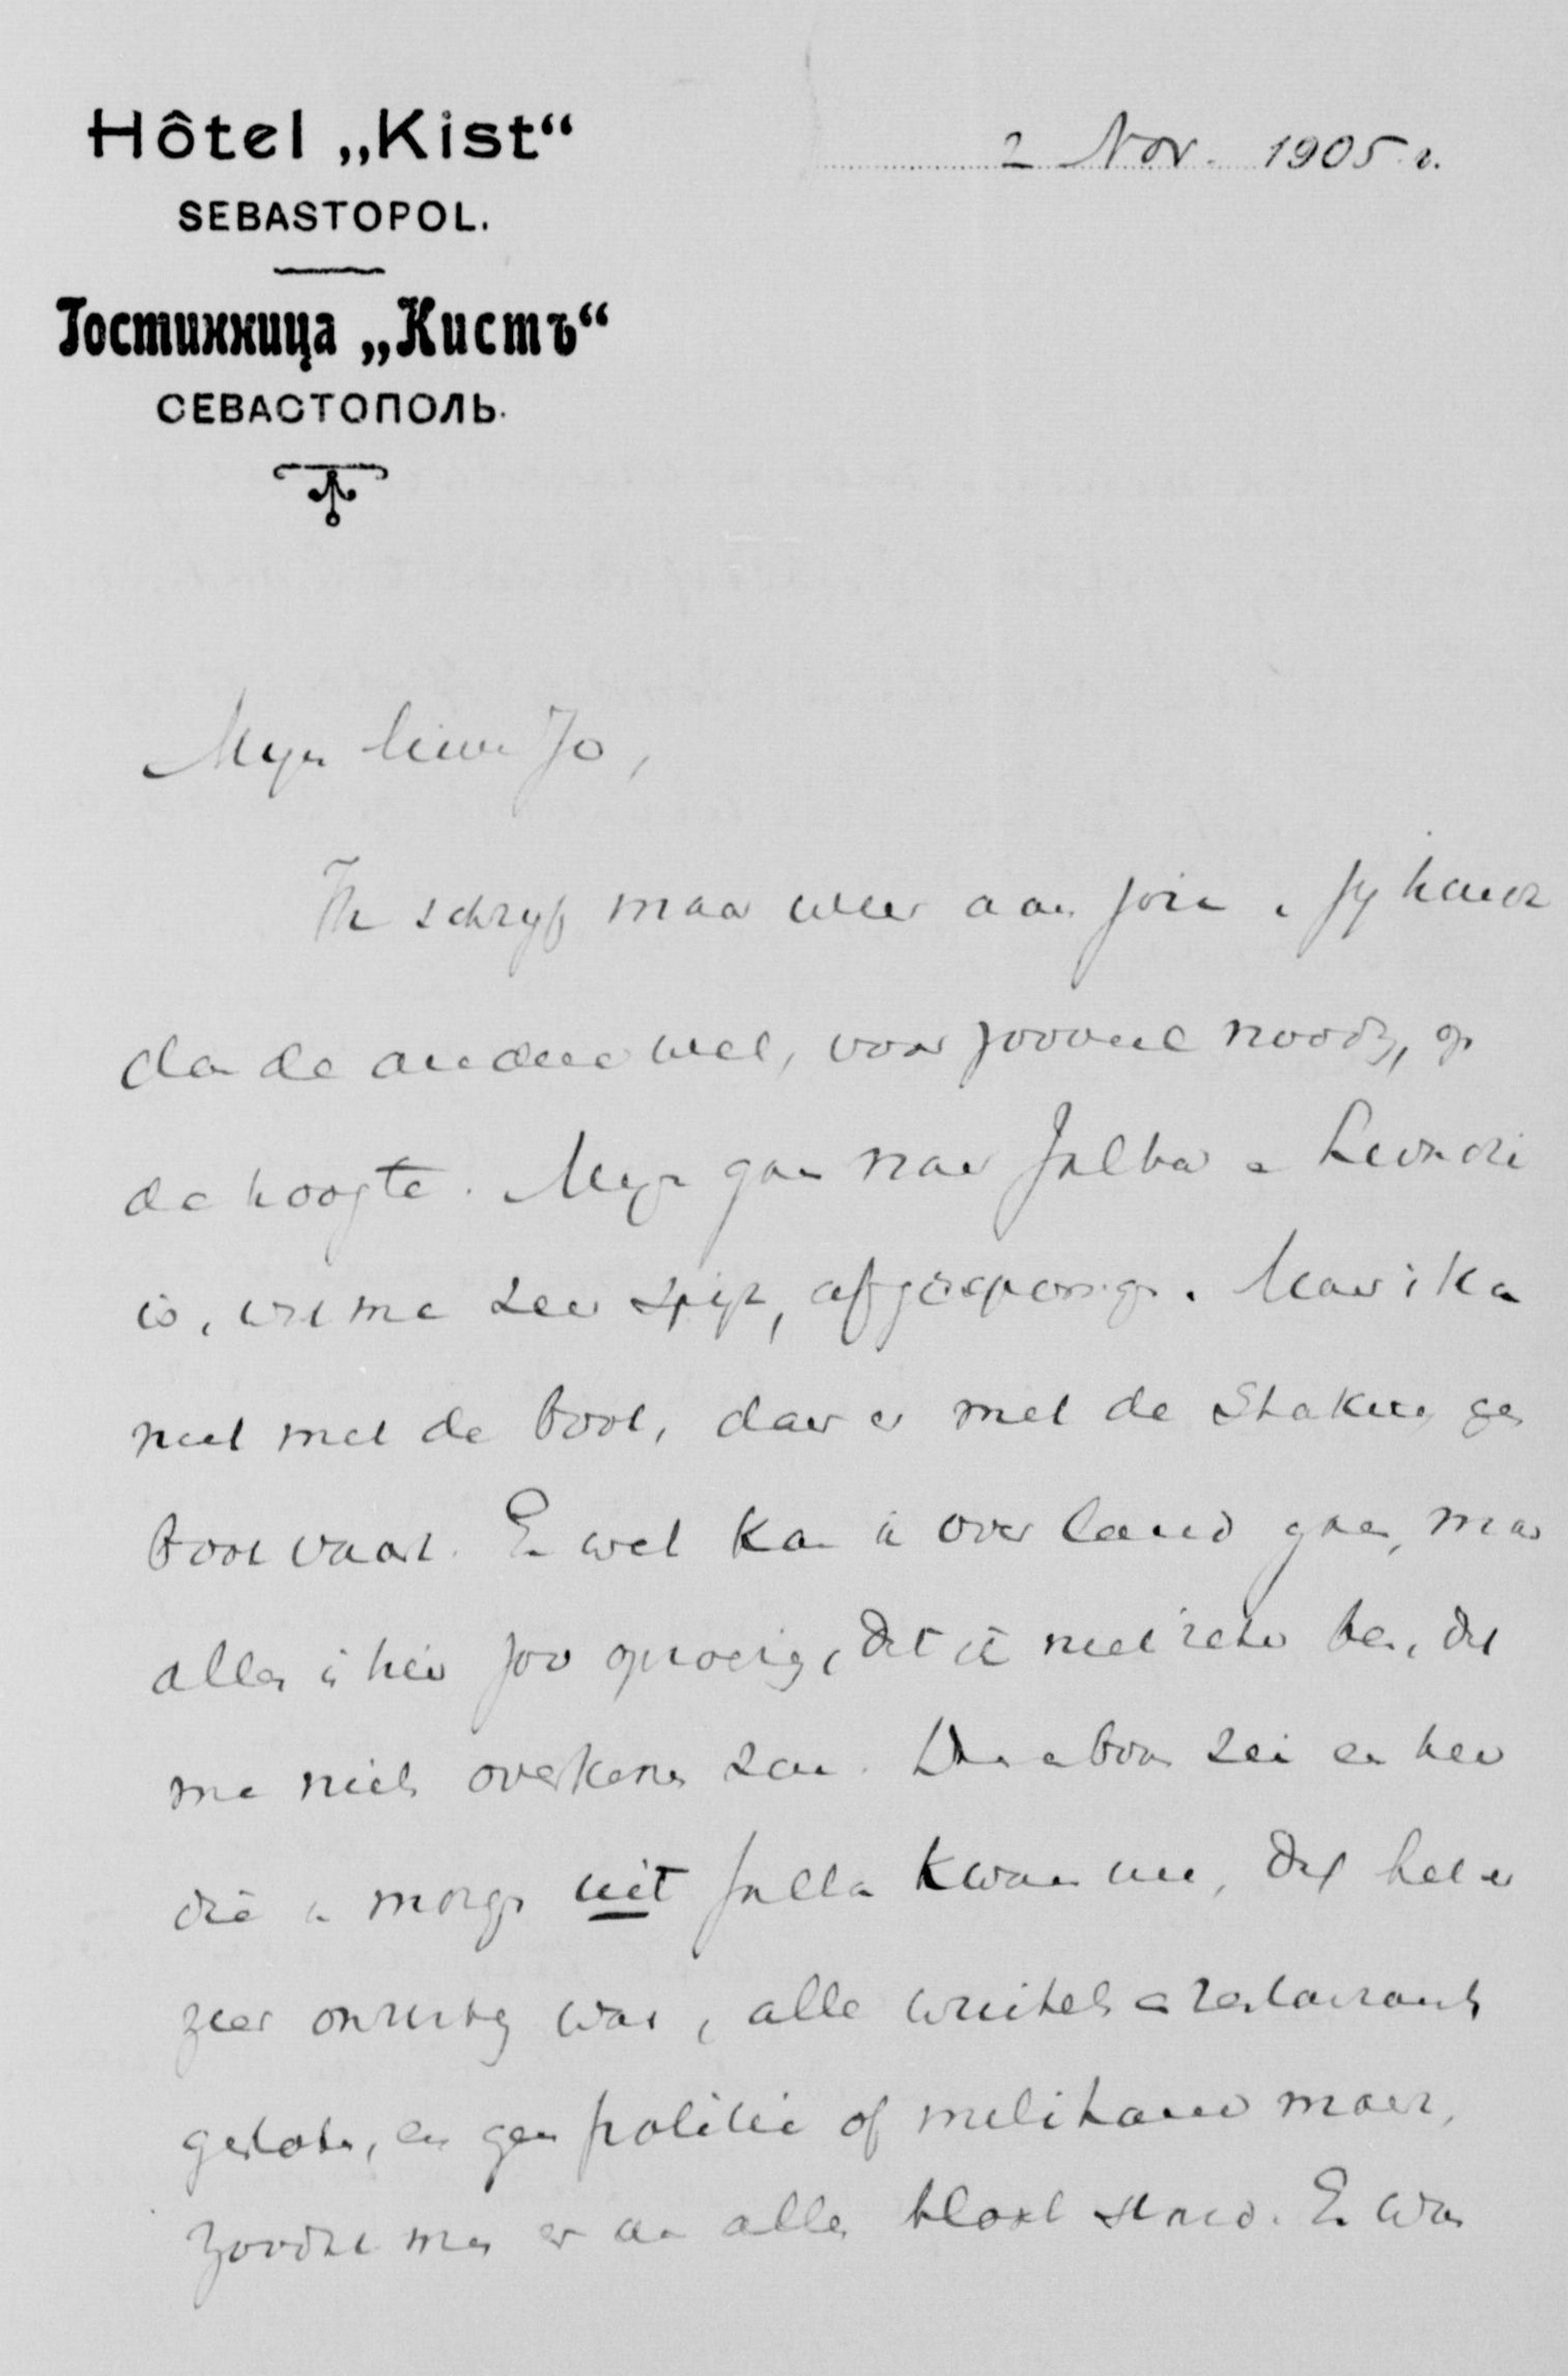 Hôtel „Kist“
SEBASTOPOL.
Гостинница „Кистъ“
СЕВАСТОПОЛЬ.
2 Nov. 1905 г.
Myn lieve Jo,
Ik schryf maar weer aan jou. Jy houdt
dan de anderen wel, voor zooveel noodig, op
de hoogte. Myn gaan naar Jalta en
is, wat me zeer spijt, afgesprongen. Naar ik kan
niet met de boot, daar er met de staking geen
boot vaart. En wel kan ik over land gaan, maar
alles is hier zoo oproerig, dat ik niet zeker ben, dat
me niets overkomen zou. Daareboven zei een heer
die van morgen uit Jalta kwam me, dat het er
zeer onrustig was, alle winkels en restaurants
gesloten, en geen politie of militair meer,
zoodat men er aan alles bloot staat. En was